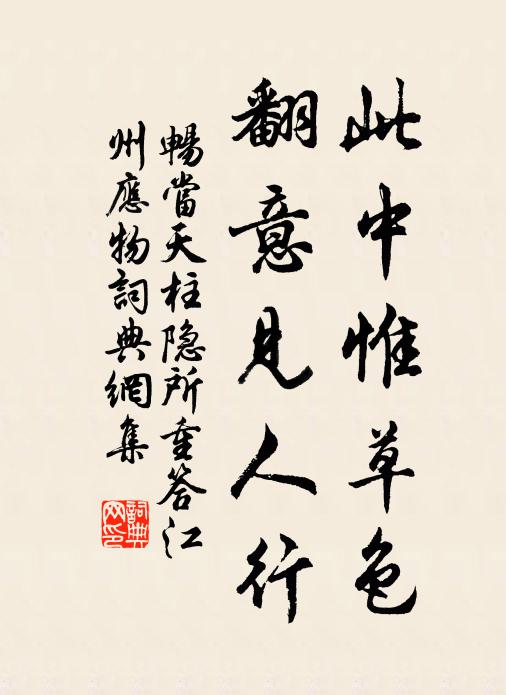 此中惟草色
翻意見人行
暢當天柱隐所重答江
州應物詞典網集
詞典网印